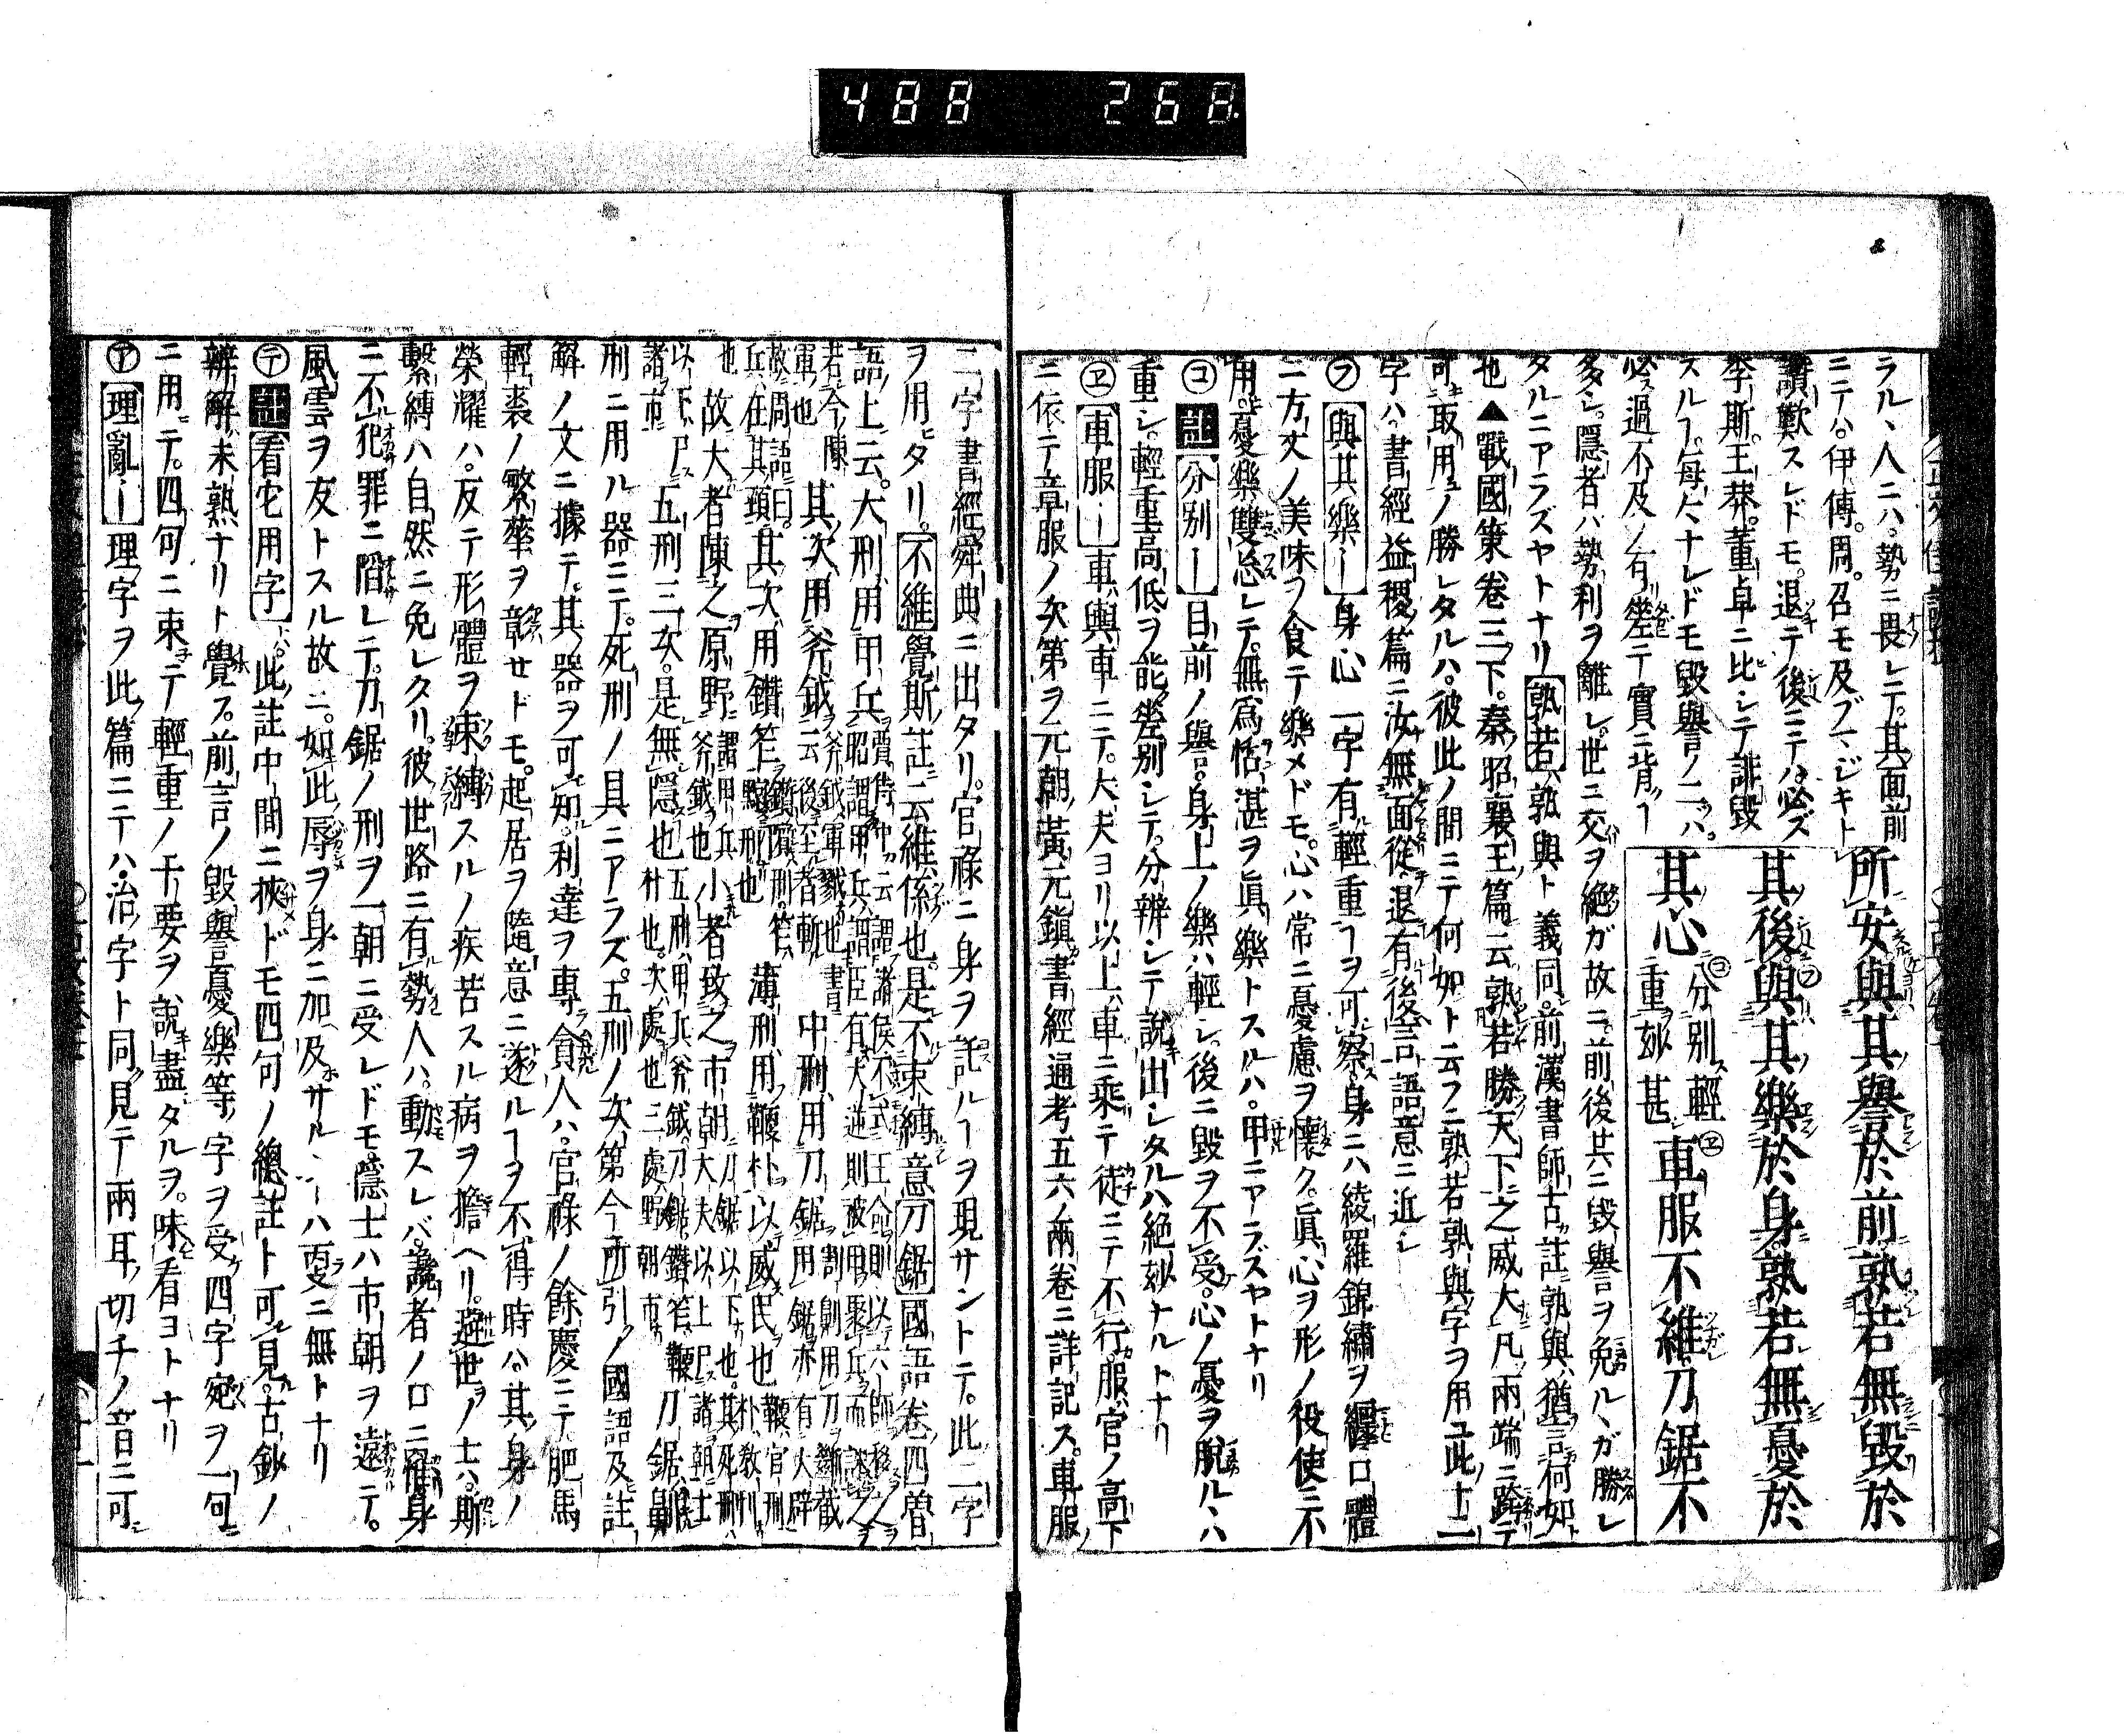 488 268.
ラルヽ人ニハ。勢ニ畏レテ。其面前
ニテハ。伊傅。周。召モ及ブマジキト
讃歎スレドモ。退テ後ニテハ必ズ
李斯。王莽。董卓ニ比シテ誹毀
スルヿ。毎〻ナレドモ毀與譽ノ二ハ。
必ス過不及ノ有差テ實ニ背クヿ
所安與其譽於前孰若無毀於
其後㋫與其樂於身孰若無憂於
其心㋙分别輕重玅甚㋓車服不維刀鋸不
多シ。隱者ハ勢利ヲ離レ。世ニ交ヲ絶ガ故ニ。前後共ニ毀譽ヲ免ルヽガ勝レ
タルニアラズヤトナリ孰若孰與ト義同。前漢書師古註孰與猶言何如
也▲戰國策卷三下。秦昭襄王篇云孰若勝天下之威大凡兩端ニ跨テ
可取用ノ勝レタルハ。彼此ノ間ニテ何如ト云フニ孰若孰與字ヲ用ユ此十二
字ハ書經益稷篇ニ汝無面從退有後言語意ニ近シ
㋫與其樂ー身心二字有輕重ヿヲ可察身ニハ綾羅錦繡ヲ纏口體
ニ方丈ノ美味ヲ食テ樂メドモ。心ハ常ニ憂慮ヲ懷ク。眞心ヲ形ノ役使ニ不
用。憂樂雙忘レテ。無爲恬湛ヲ眞樂トスルハ。甲ニアラズヤトナリ
㋙註分别ー目前ノ譽。身上ノ樂ハ輕シ。後ニ毀ヲ不受。心ノ憂ヲ脫ルヽハ
重シ。輕重高低ヲ能差别シテ。分辨シテ說出シタルハ絶玅ナルトナリ
㋓車服ー車輿車ニテ。大夫ヨリ以上車ニ乘テ徒ニテ不行服官ノ高下
ニ依テ章服ノ次第ヲ元朝黃元鎭書經通考五六ノ兩卷ニ詳記ス。車服
二字書經舜典ニ出タリ。官祿ニ身ヲ託ルヿヲ現サントテ。此二字
ヲ用タリ。不維覺斯註云維係也。是不束縛意刀鋸國語卷四魯
語上云。大刑用甲兵賈侍中云謂諸侯不式王命則以六師移之
昭謂甲兵謂臣有大逆則被甲聚兵而誅之
若今陳軍也其次用斧鉞斧鉞軍戮也書云後至者斬中刑用刀鋸割劓用刀斷截用鋸亦有大辟
故周語曰。兵在其頸其次用鑽笮鑽臏刑。笮黥刑也薄刑用鞭朴以威民也鞭官刑朴教刑
也故大者陳之原野謂甲兵斧鉞也小者致之市朝刀鋸以下也。其死刑大夫以上尸諸朝士
以下尸諸市五刑三次。是無隱也五刑甲兵斧鉞。刀鋸鑽笮鞭朴也。次處也三處野朝市刀鋸鼻
刑ニ用ル器ニテ。死刑ノ具ニアラズ。五刑ノ次第今所引ノ國語及註
解ノ文ニ據テ。其器ヲ可知。利達ヲ專貪人ハ。官祿ノ餘慶ニテ。肥馬
輕裘ノ繁華ヲ彰セドモ。起居ヲ隨意ニ遂ルヿヲ不得時ハ。其身ノ
榮耀ハ。反テ形體ヲ束縛スルノ疾苦スル病ヲ擔ヘリ。遊世ノ士ハ。斯
繫縛ハ自然ニ免レタリ。彼世路ニ有勢人ハ。動スレバ。讒者ノ口ニ罹身
ニ不犯罪ニ陷レテ。刀鋸ノ刑ヲ一朝ニ受レドモ。隱士ハ市朝ヲ遠テ。
風雲ヲ友トスル故ニ。如此辱ヲ身ニ加及サルヽーハ㪅ニ無トナリ
㋢註看它用字ト。此註中間ニ挾ドモ四句ノ總註ト可見。古鈔ノ
辨解未熟ナリト覺ス。前言ノ毀與譽憂樂等字ヲ受四字宛ヲ一句
ニ用テ。四句ニ束テ輕重ノ干要ヲ說盡タルヲ。味看ヨトナリ
㋐理亂ー理字ヲ此篇ニテハ治字ト同見テ兩耳切チノ音ニ可